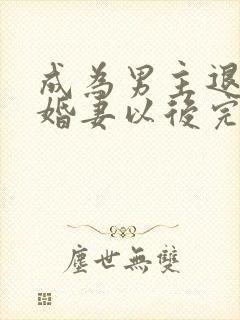 成為男主退
婚妻以後完
塵世無雙